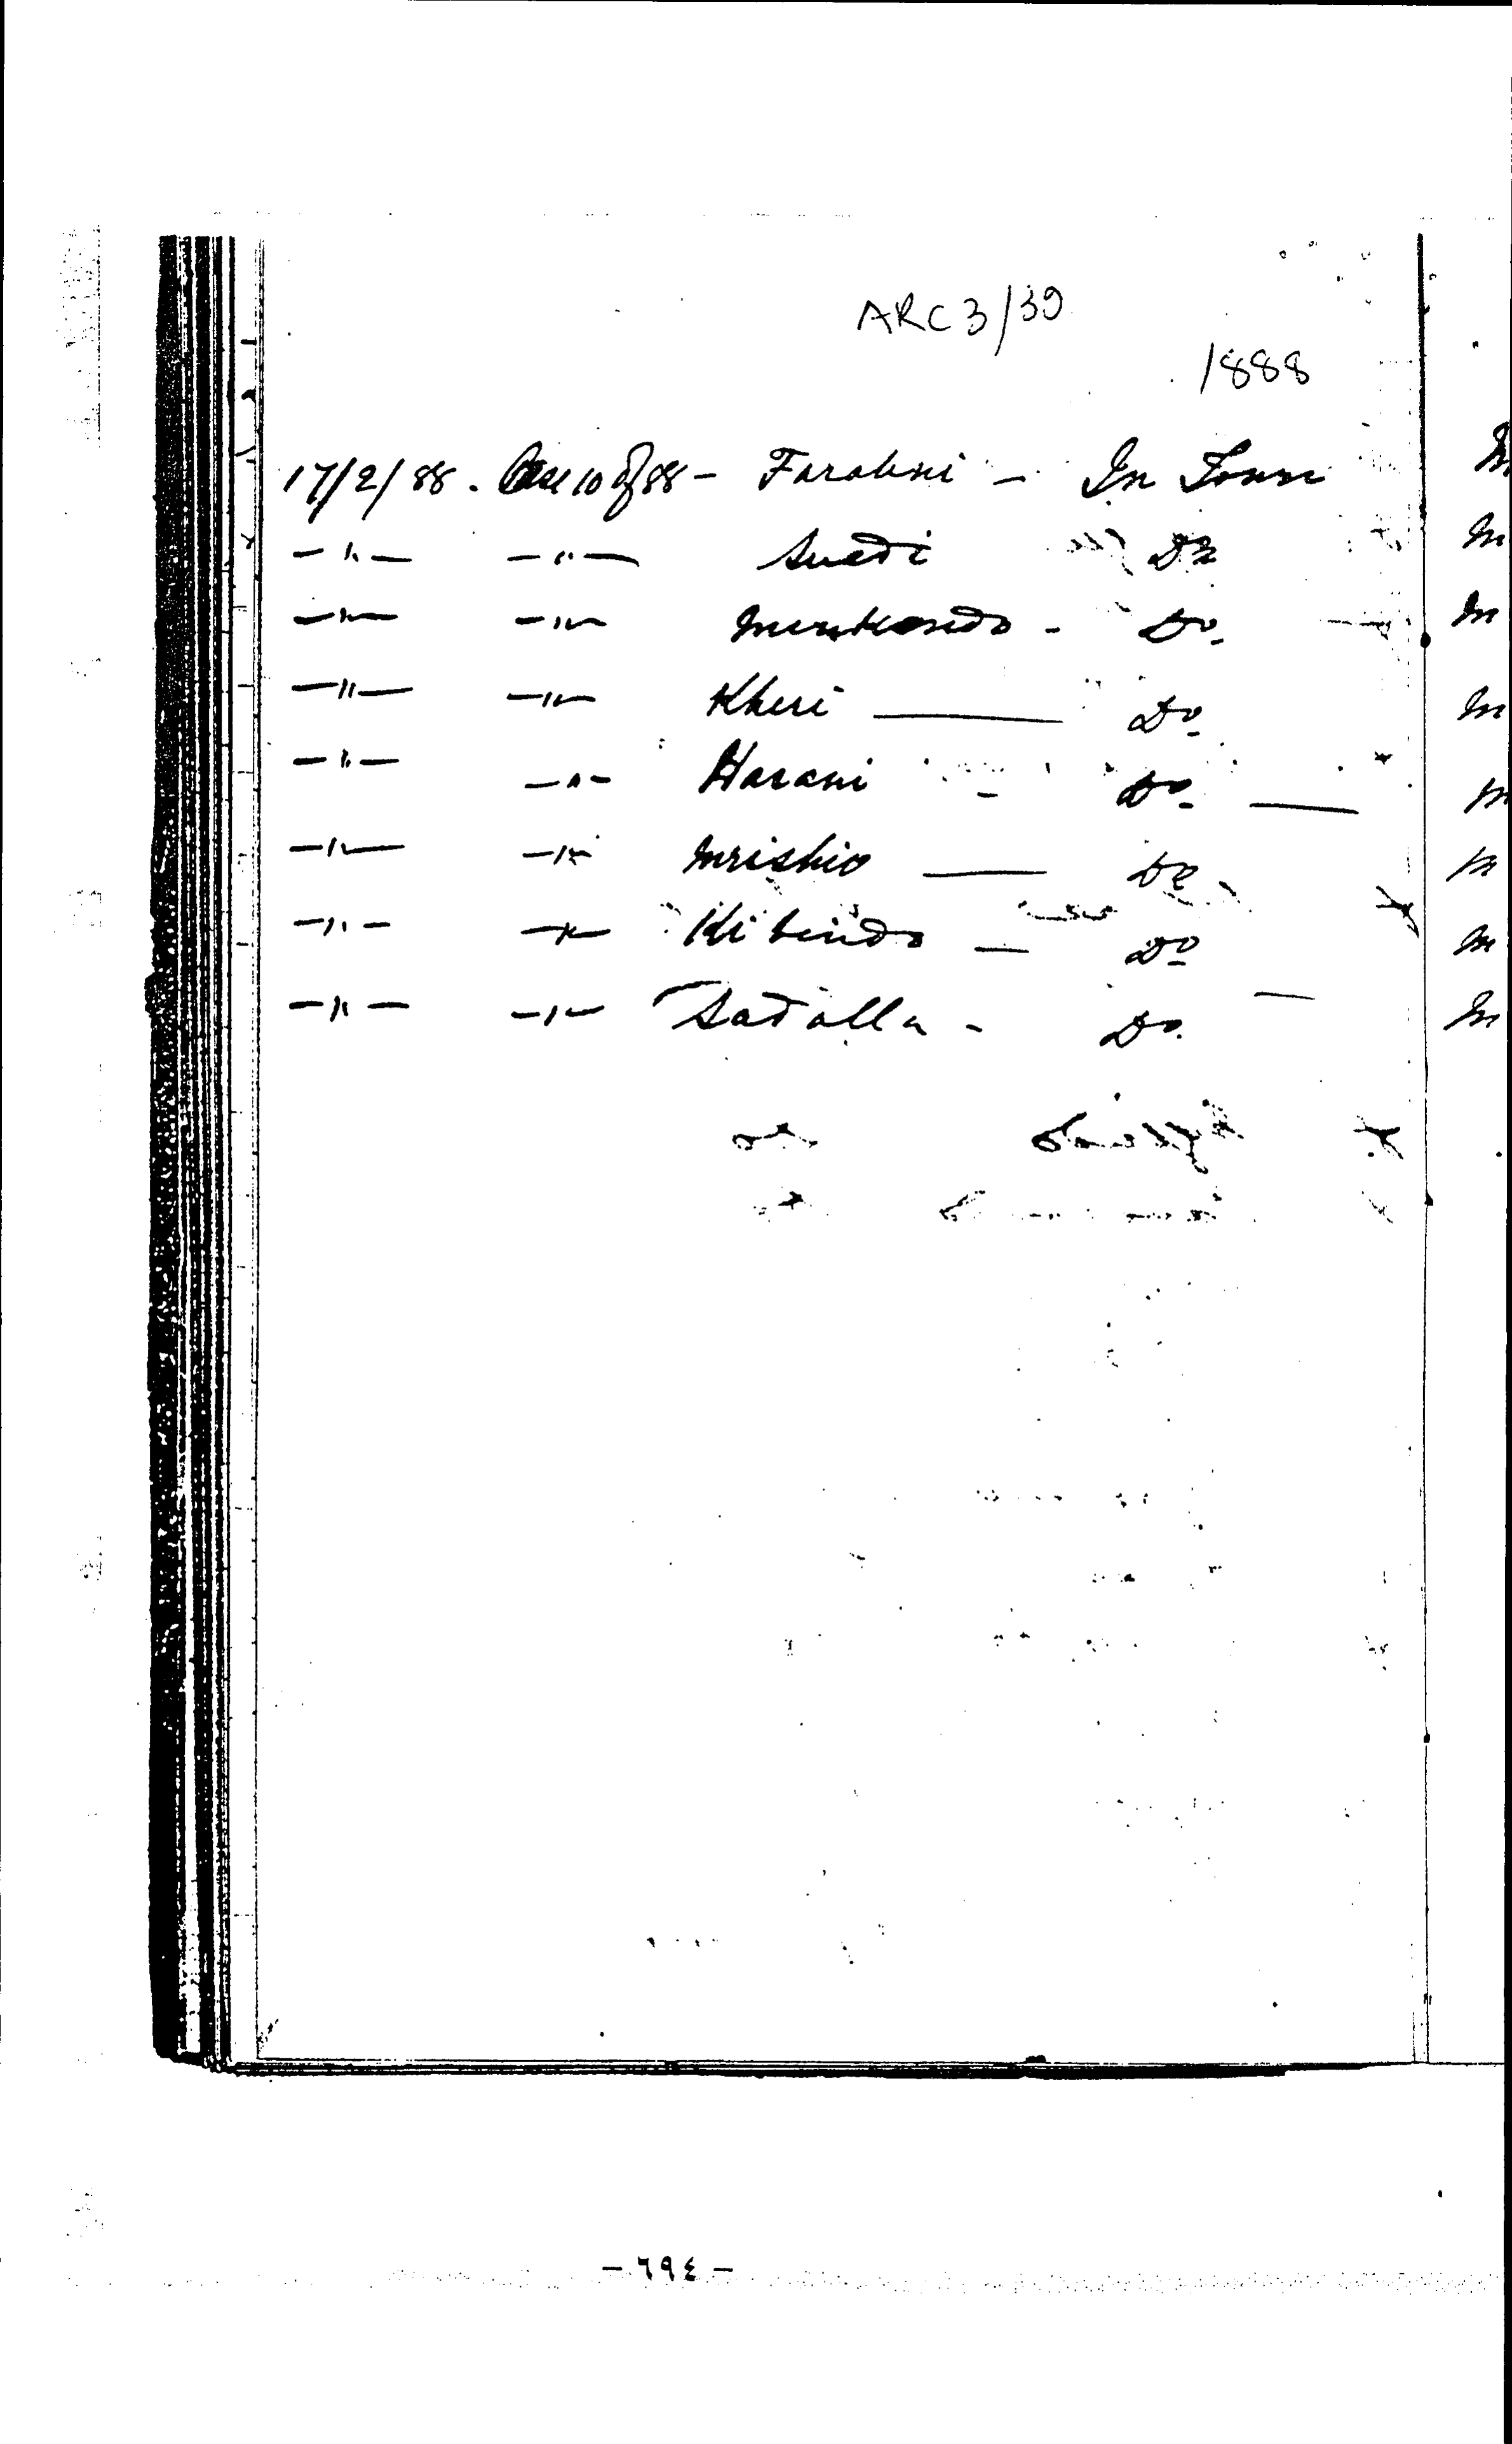 ARC 3/39
1888
17/2/88. Case 10 of 88 - Farahni - In Town
-"- -"- Suedi Do
-"- -"- - Do.
-"- -"- Kheri — Do
-"- -"- Harani - Do. —
-"- -"- Mrishio — Do
-"- -"- Kibindo — Do
-"- -"- Sadalla - Do.
- ٦٩٤ -